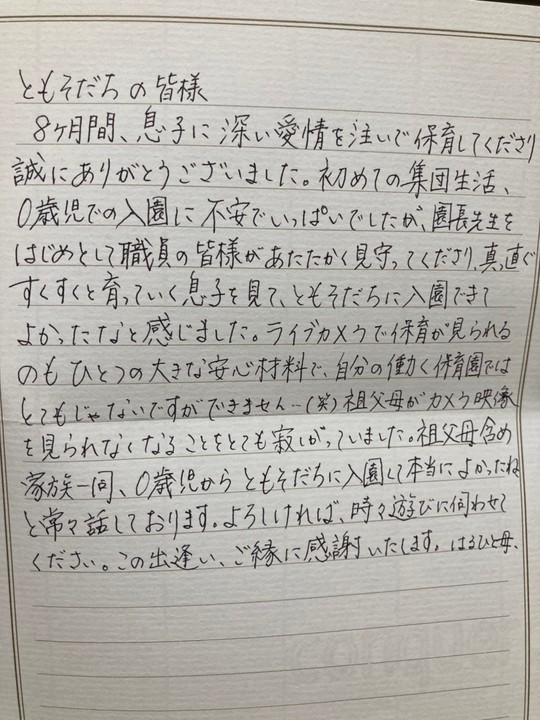 ともそだちの皆様
8ヶ月間、息子に深い愛情を注いで保育してくださり
誠にありがとうございました。初めての集団生活、
0歳児での入園に不安でいっぱいでしたが、園長先生を
はじめとして職員の皆様があたたかく見守ってくださり、真っ直ぐ
すくすくと育っていく息子を見て、ともそだちに入園できて
よかったなと感じました。ライブカメラで保育が見られる
のもひとつの大きな安心材料で、自分の働く保育園では
とてもじゃないですができません…(笑)祖父母がカメラ映像
を見られなくなることをとても寂しがっていました。祖父母含め
家族一同、0歳児からともそだちに入園して本当によかったね
と常々話しております。よろしければ、時々遊びに伺わせて
ください。この出逢い、ご縁に感謝いたします。はるひと母、